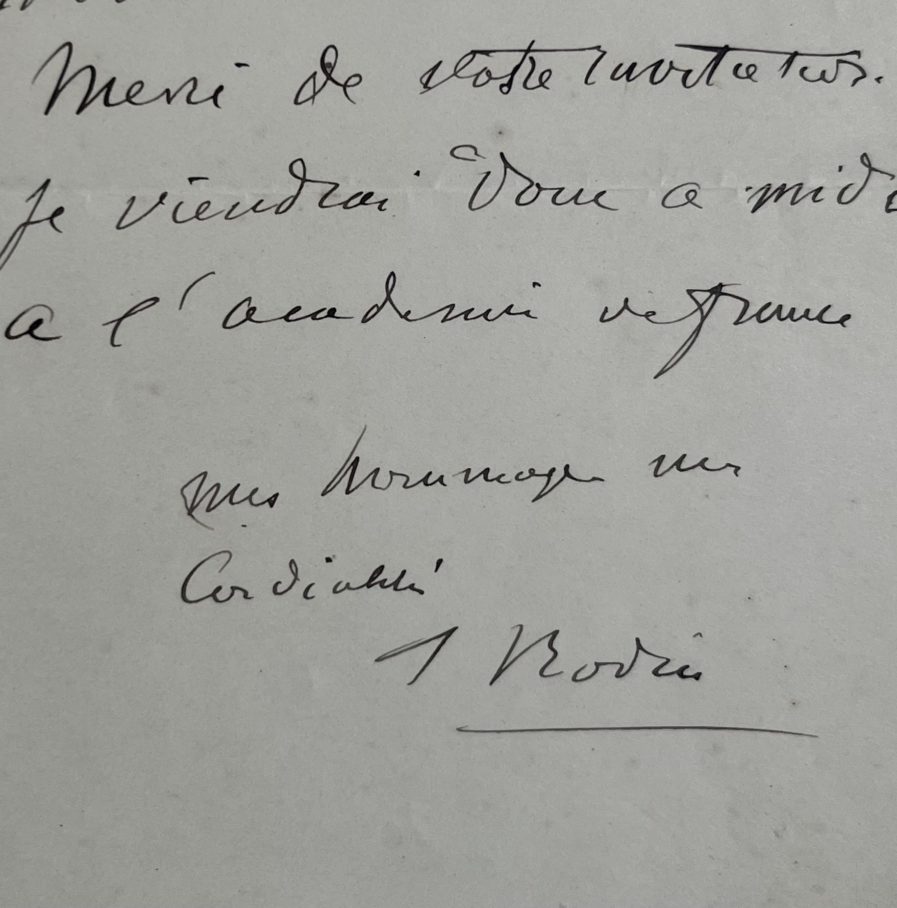 Merci de Votre Invitation.
Je viendrai Donc a midi
a l'academie de france
mes hommages mes
Cordialité
A Rodin